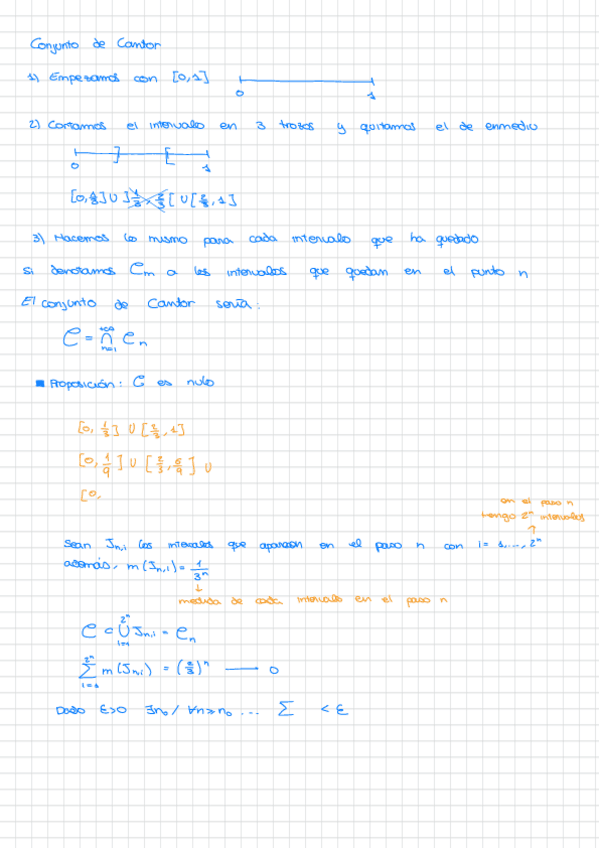 Conjunto de Cantor
1) Empezamos con [0,1]
0 1
2) Cortamos el intervalo en 3 trozos y quitamos el de enmedio
0 ] [ 1
[0,1/3] ∪ ]1/3, 2/3[ ∪ [2/3, 1]
3) Hacemos lo mismo para cada intervalo que ha quedado
si denotamos Cn a los intervalos que quedan en el punto n
El conjunto de Cantor sería:
C = ∩_{n=1}^{+∞} Cn
■ Proposición: C es nulo
[0, 1/3] ∪ [2/3, 1]
[0, 1/9] ∪ [2/3, 6/9] ∪
[0,
en el paso n
tengo 2^n intervalos
↑
Sean Jn,i los intervalos que aparecen en el paso n con i = 1,..., 2^n
además, m(Jn,i) = 1/3^n
↓
medida de cada intervalo en el paso n
C ⊂ ∪_{i=1}^{2^n} Jn,i = Cn
∑_{i=1}^{2^n} m(Jn,i) = (2/3)^n → 0
Dado ε>0 ∃n₀ / ∀n≥n₀ ... ∑ < ε